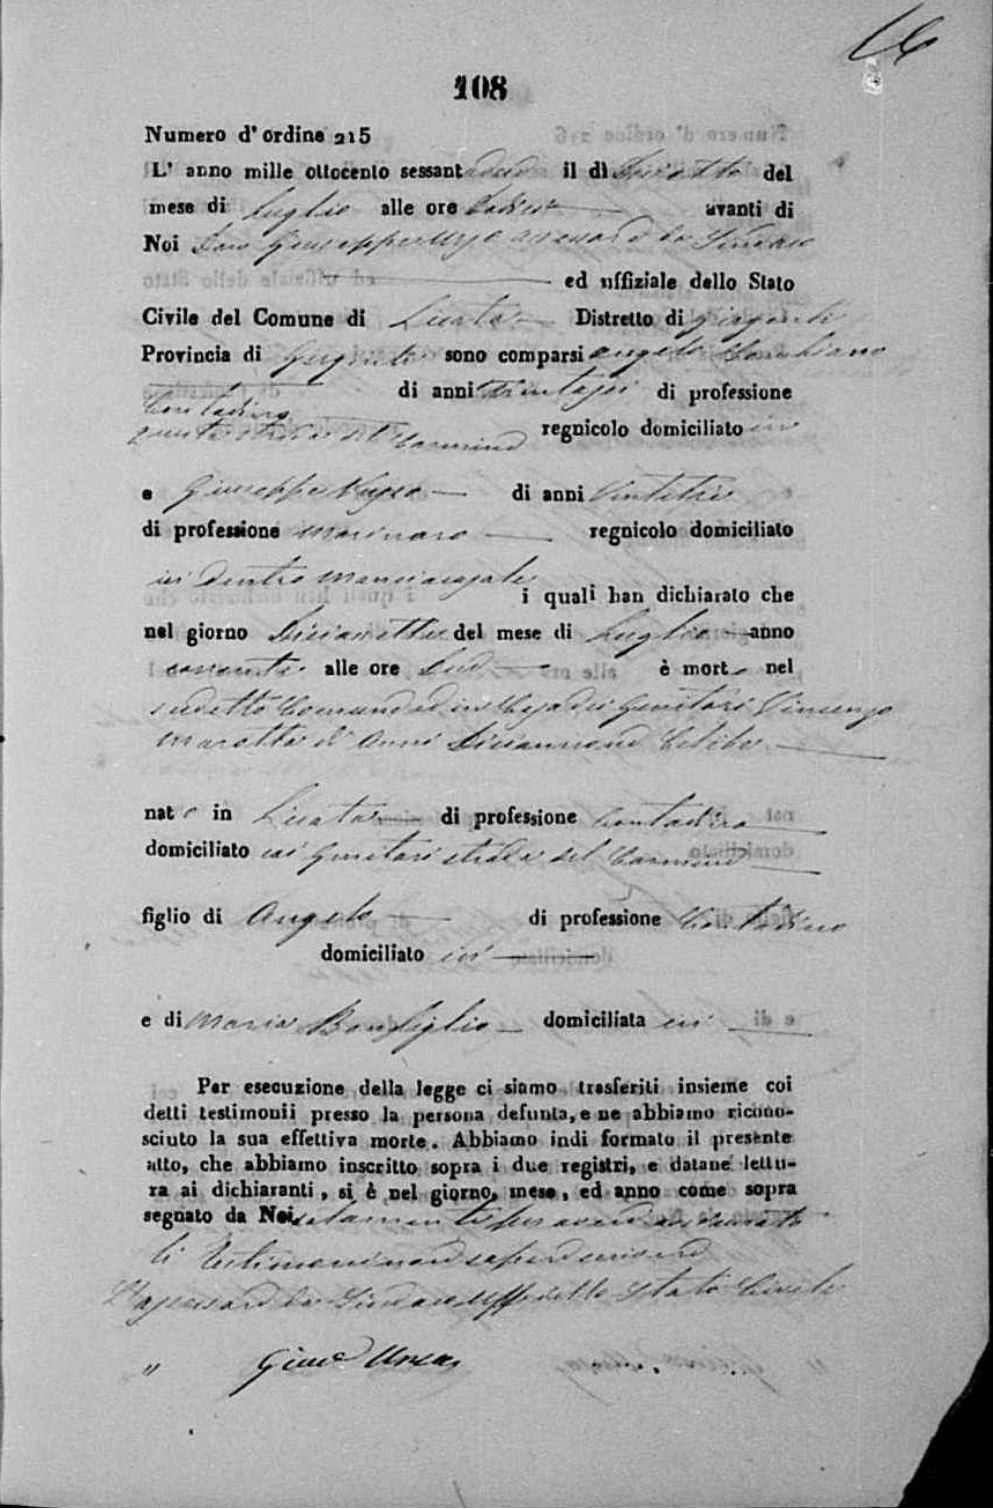 16
108
Numero d'ordine 215
L'anno mille ottocento sessantadue il dì Dieciotto del
mese di Luglio alle ore avanti di
Noi Don Giuseppe Urso assessore da Sindaco
ed uffiziale dello Stato
Civile del Comune di Licata Distretto di Girgenti
Provincia di Girgenti sono comparsi Angelo
di anni trentasei di professione
Contadino regnicolo domiciliato in
strada del Carmine
e Giuseppe di anni Ventitre
di professione marinaro regnicolo domiciliato
in dentro
i quali han dichiarato che
nel giorno Diciasette del mese di Luglio anno
corrente alle ore è morto nel
sudetto Comune ed in Casa dei Genitori Vincenzo
Marotta di Anni Diciannove Celibe
nato in Licata di professione Contadino
domiciliato coi Genitori strada del Carmine
figlio di Angelo di professione Contadino
domiciliato ivi
e di Maria Bonfiglio domiciliata ivi
Per esecuzione della legge ci siamo trasferiti insieme coi
detti testimonii presso la persona defunta, e ne abbiamo ricono-
sciuto la sua effettiva morte. Abbiamo indi formato il presente
atto, che abbiamo inscritto sopra i due registri, e datane lettu-
ra ai dichiaranti, si è nel giorno, mese, ed anno come sopra
segnato da Noi solamente per avere asserito
li Testimoni non sapere scrivere
L'assessore da Sindaco Uff. dello Stato Civile
" Giuse Urso